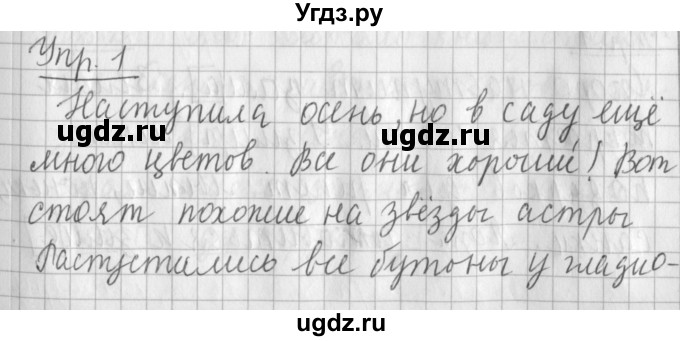 Угдз.ру
Упр. 1
Наступила осень, но в саду ещё
ugdz.ru ugdz.ru
много цветов. Все они хороши! Вот
стоят похожие на звёзды астры
Распустились все бутоны у гладио-
ugdz.ru